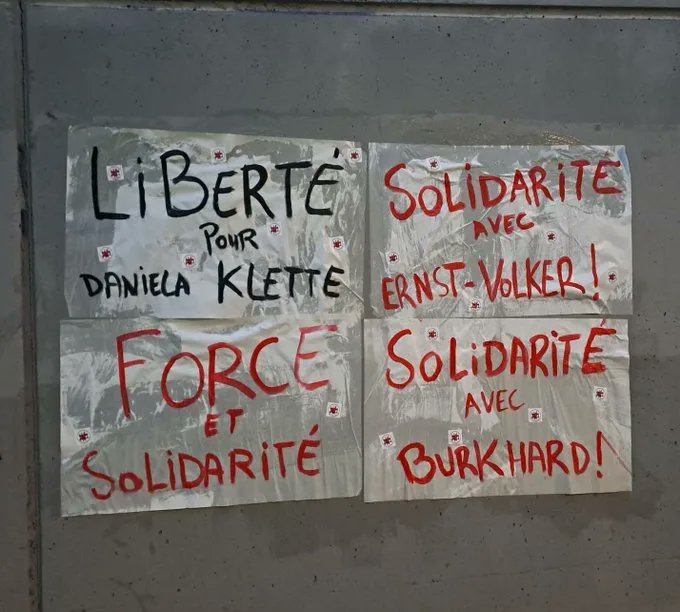 LiBERTÉ
POUR
DANIELA KLETTE
SOLiDARiTÉ
AVEC
ERNST-VOLKER!
FORCE
ET
SOLiDARiTÉ
SOLiDARiTÉ
AVEC
BURKHARD!